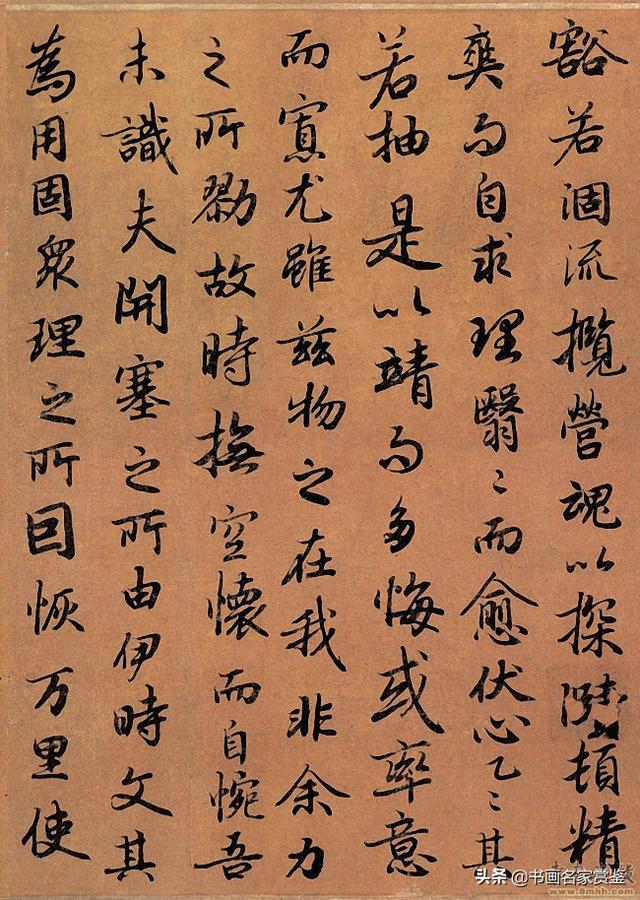 豁若涸流攬營魂以探頓精
爽而自求理翳〻而愈伏心乙〻其
若抽是以靖而多悔或率意
而寡尤雖兹物之在我非余力
之所勠故時撫空懷而自惋吾
未識夫開塞之所由伊時文其
為用固衆理之所因恢万里使
头条 @书画名家赏鉴
www.8mhh.com